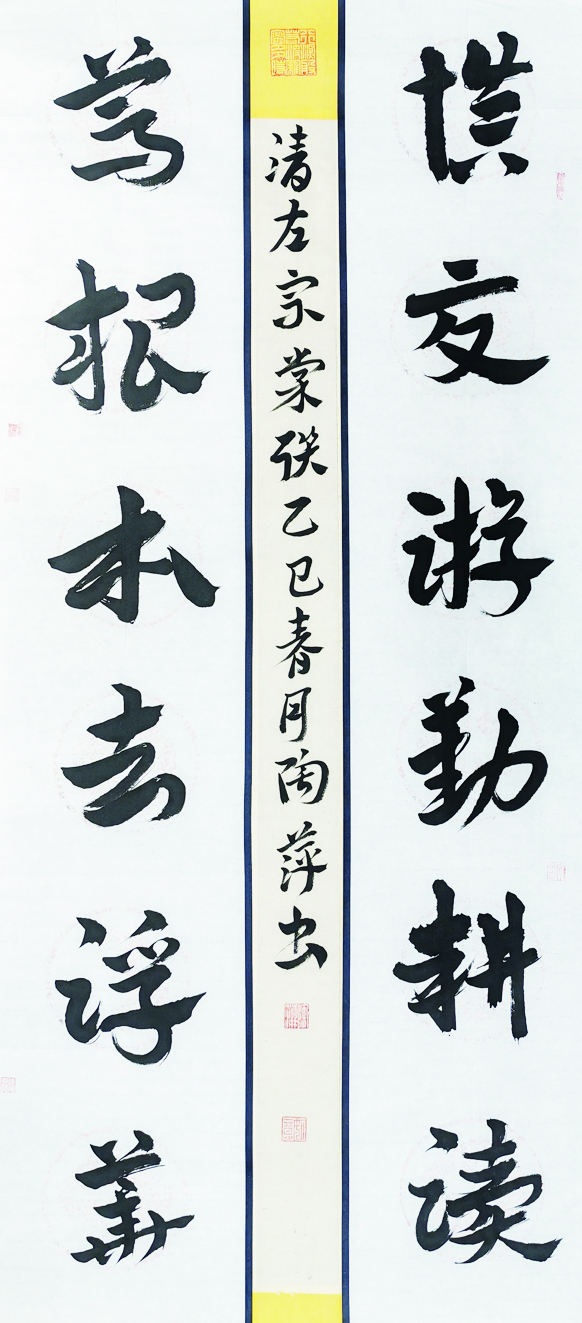 慎交游勤耕读
清左宗棠联乙巳春月陶萍书
笃根本去浮華